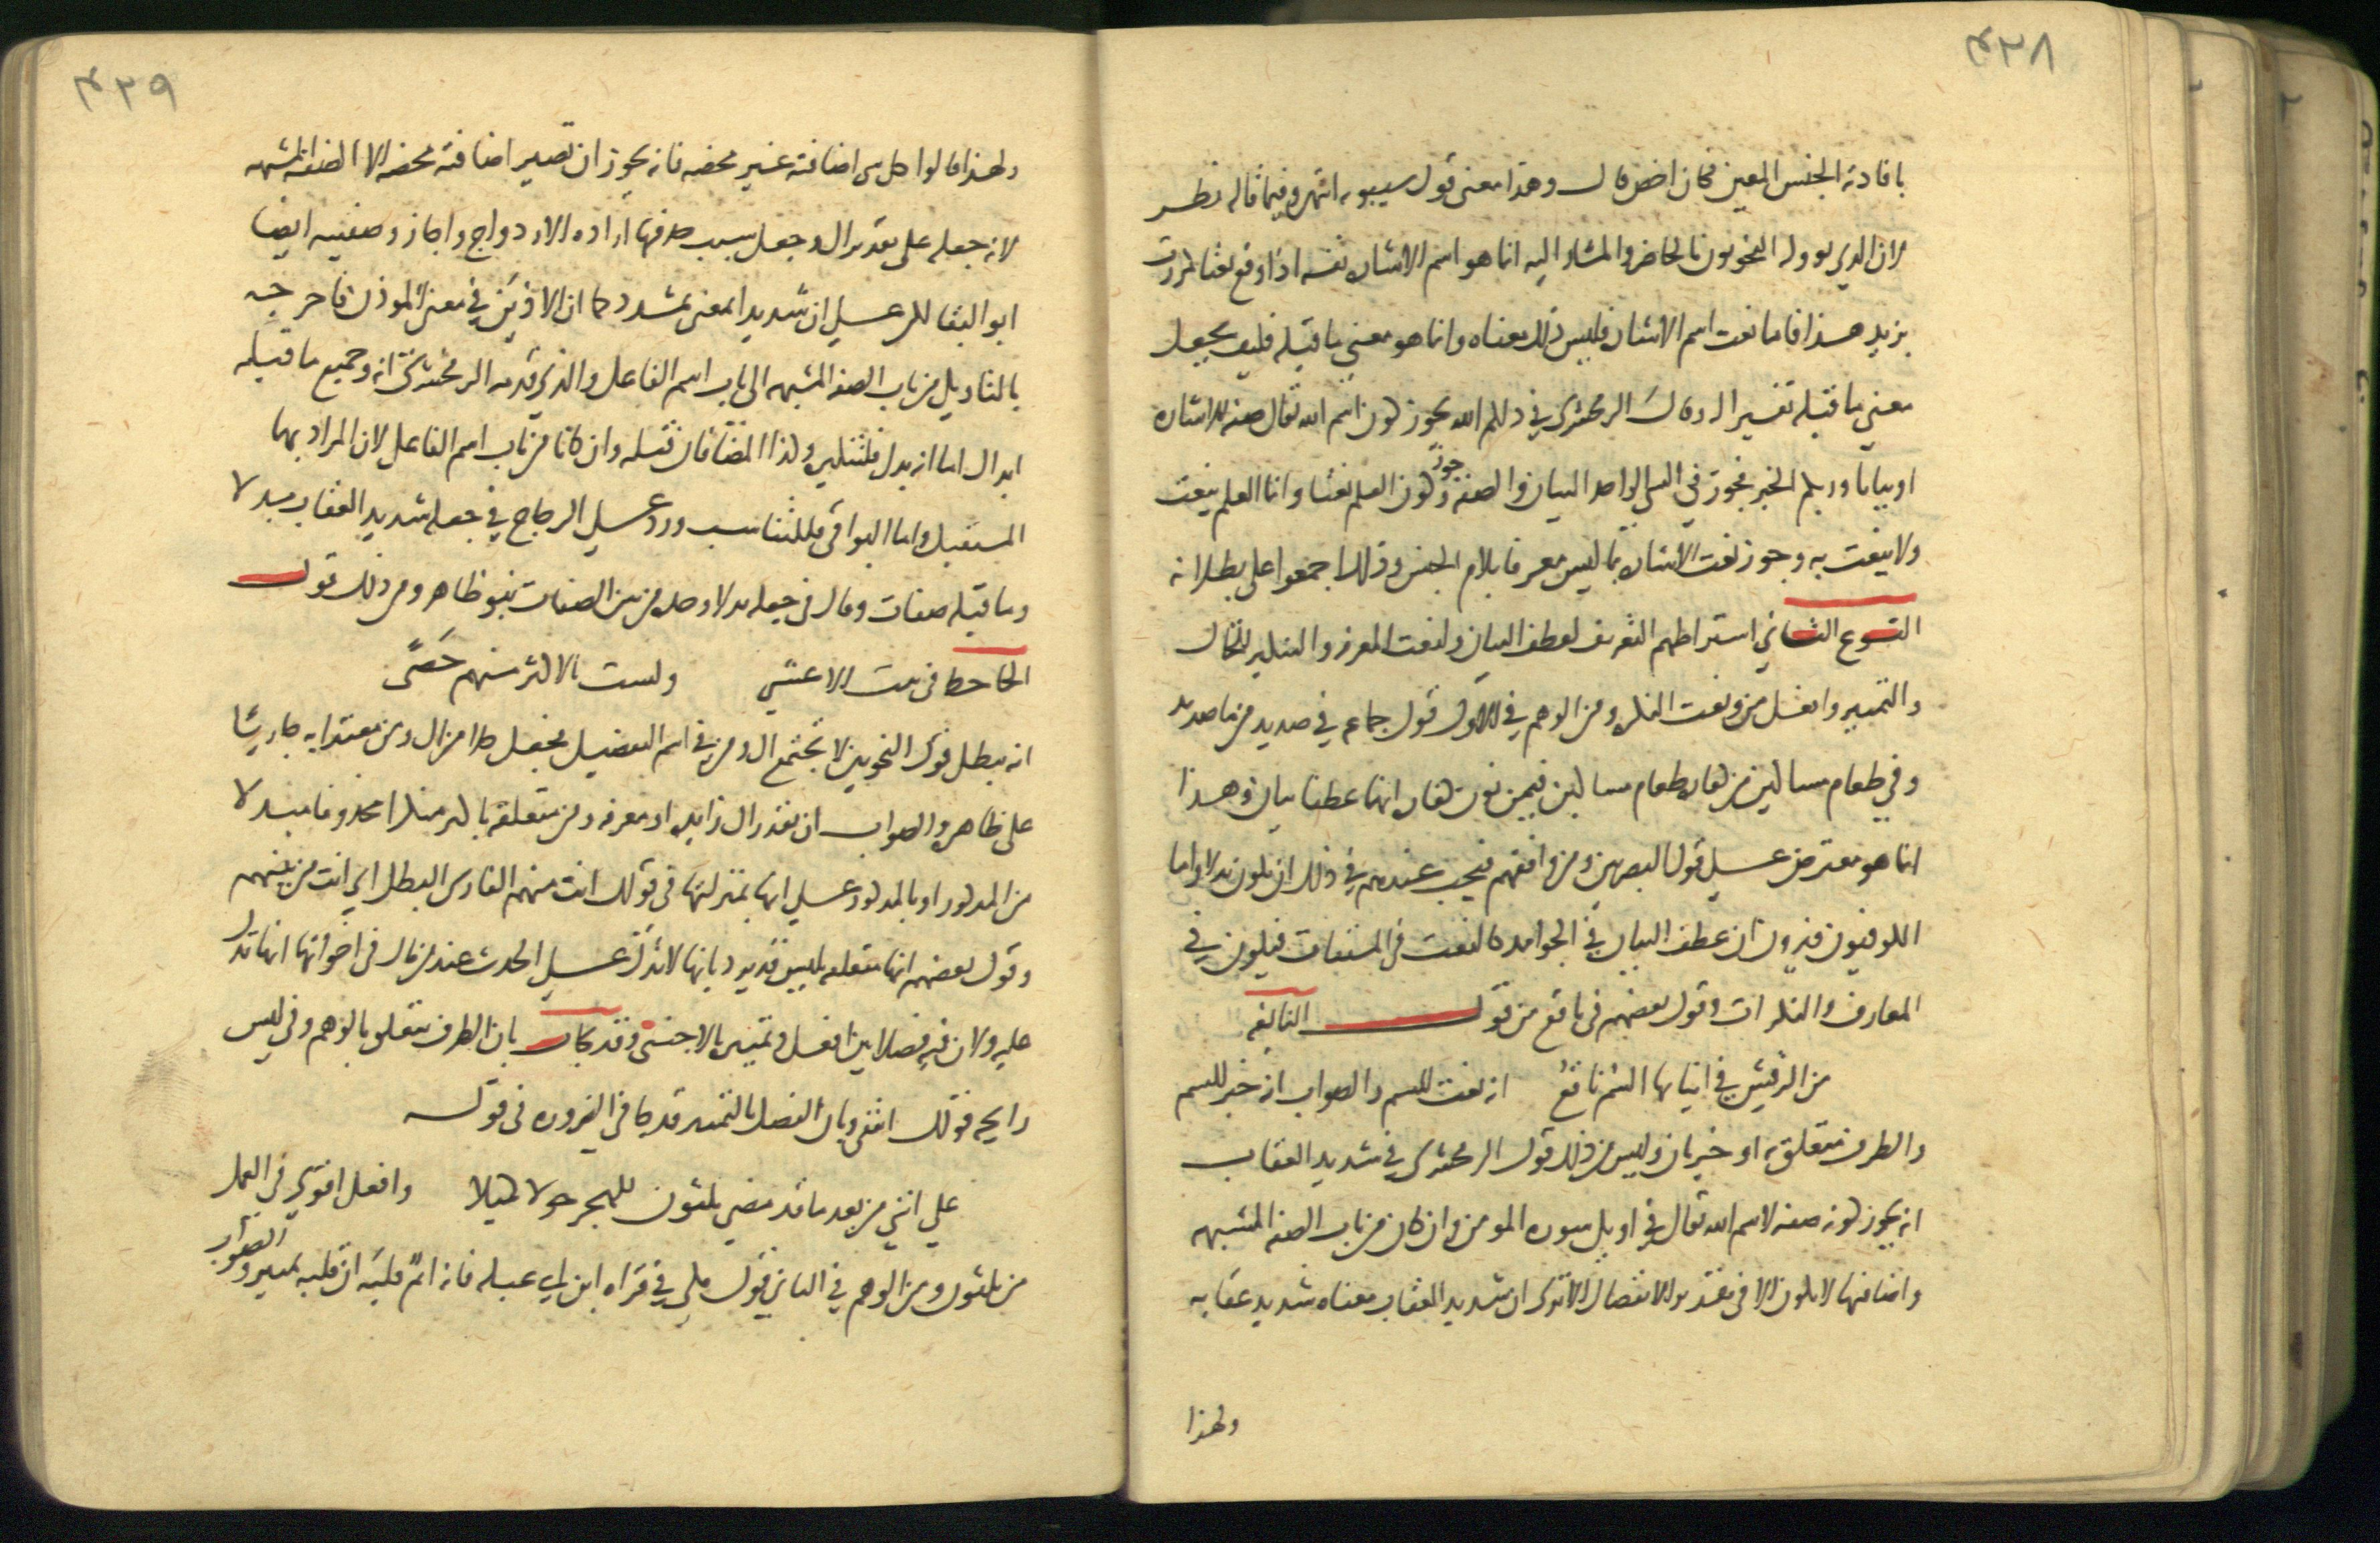 ٤٣٨
بافادته الجنس المعين فكان اخص قال وهذا معنى قول سيبويه انتهى وفيما قاله نظر
لان الذي يووله النحويون بالحاضر والمشار اليه انما هو اسم الاشاره نفسه اذا وقع نعتا لمررت
بزيد هذا فاما نعت اسم الاشاره فليس ذلك معناه وانما هو معنى ما قبله فكيف يجعل
معنى ما قبله تفسيرا له وقال الزمخشري في ذلكم الله يجوز كون اسم الله تعالى صفه للاشاره
او بيانا وربكم الخبر فجوز في الشي الواحد البيان والصفه وجوز كون العلم نعتا وانما العلم ينعت
ولا ينعت به وجوز نعت الاشاره بما ليس معرفا بلام الجنس وذلك اجمعوا على بطلانه
النوع الثاني اشتراطهم التعريف لعطف البيان ولنعت المعرفه والتنكير للحال
والتمييز وافعل من ونعت النكره ومن الوهم في الاول قول جماعه في صديد من ما صديد
وفي طعام مساكين من كفاره طعام مساكين فيمن نون كفاره انهما عطفا بيان وهذا
انما هو معترض على قول البصريين ومن وافقهم فيجب عندهم في ذلك ان يكون بدلا واما
الكوفيون فيرون ان عطف البيان في الجوامد كالنعت في المشتقات فيكون في
المعارف والنكرات وقول بعضهم في ناقع من قول النابغه
من الرقش في انيابها السم ناقع انه نعت للسم والصواب انه خبر للسم
والظرف متعلق به او خبر ثان وليس من ذلك قول الزمخشري في شديد العقاب
انه يجوز كونه صفه لاسم الله تعالى في اوايل سوره المومن وان كان من باب الصفه المشبهه
واضافتها لا تكون الا في تقدير الانفصال الا ترى ان شديد العقاب معناه شديد عقابه
ولهذا
٤٣٩
ولهذا قالوا كل شي اضافته غير محضه فانه يجوز ان تصير اضافته محضه الا الصفه المشبهه
لانه جعله على تقدير ال وجعل سبب حذفها اراده الازدواج واجاز وصفيته ايضا
ابو البقا لكن على ان شديدا بمعنى مشدد كما ان الاذين في معنى الموذن فاخرجه
بالتاويل من باب الصفه المشبهه الى باب اسم الفاعل والذي قدمه الزمخشري انه وجميع ما قبله
ابدال اما انه بدل فلتنكيره وكذا المضافان قبله وان كانا من باب اسم الفاعل لان المراد بهما
المستقبل واما البواقي فللتناسب ورد على الزجاج في جعله شديد العقاب بدلا
وما قبله صفات وقال في جعله بدلا وحده من بين الصفات نبو ظاهر ومن ذلك قول
الجاحظ في بيت الاعشى ولست بالاكثر منهم حصى
انه يبطل قول النحويين لا تجتمع ال ومن في اسم التفضيل فجعل كلا من ال ومن معتدا به جاريا
على ظاهره والصواب ان تقدر ال زايده او معرفه ومن متعلقه باكثر منكرا محذوفا مبدلا
من المذكور او بالمذكور على انها بمنزلتها في قولك انت منهم الفارس البطل اي انت من بينهم
وقول بعضهم انها متعلقه بليس قد يرد بانها لا تدل على الحدث عند من قال في اخواتها انها تدل
عليه ولان فيه فصلا بين افعل وتمييزه بالاجنبي وقد يجاب بان الظرف متعلق بالوهم وفي ليس
رايحه قولك انتفى وبان الفصل بالتمييز قد جا في الضروره في قوله
على انني من بعد ما قد مضى ثلثون للهجر حولا كميلا وافعل اقوى في العمل
من ثلثون ومن الوهم في الثاني قول مكي في قراه ابن ابي عبله فانه اثم قلبه ان قلبه تمييز والصواب